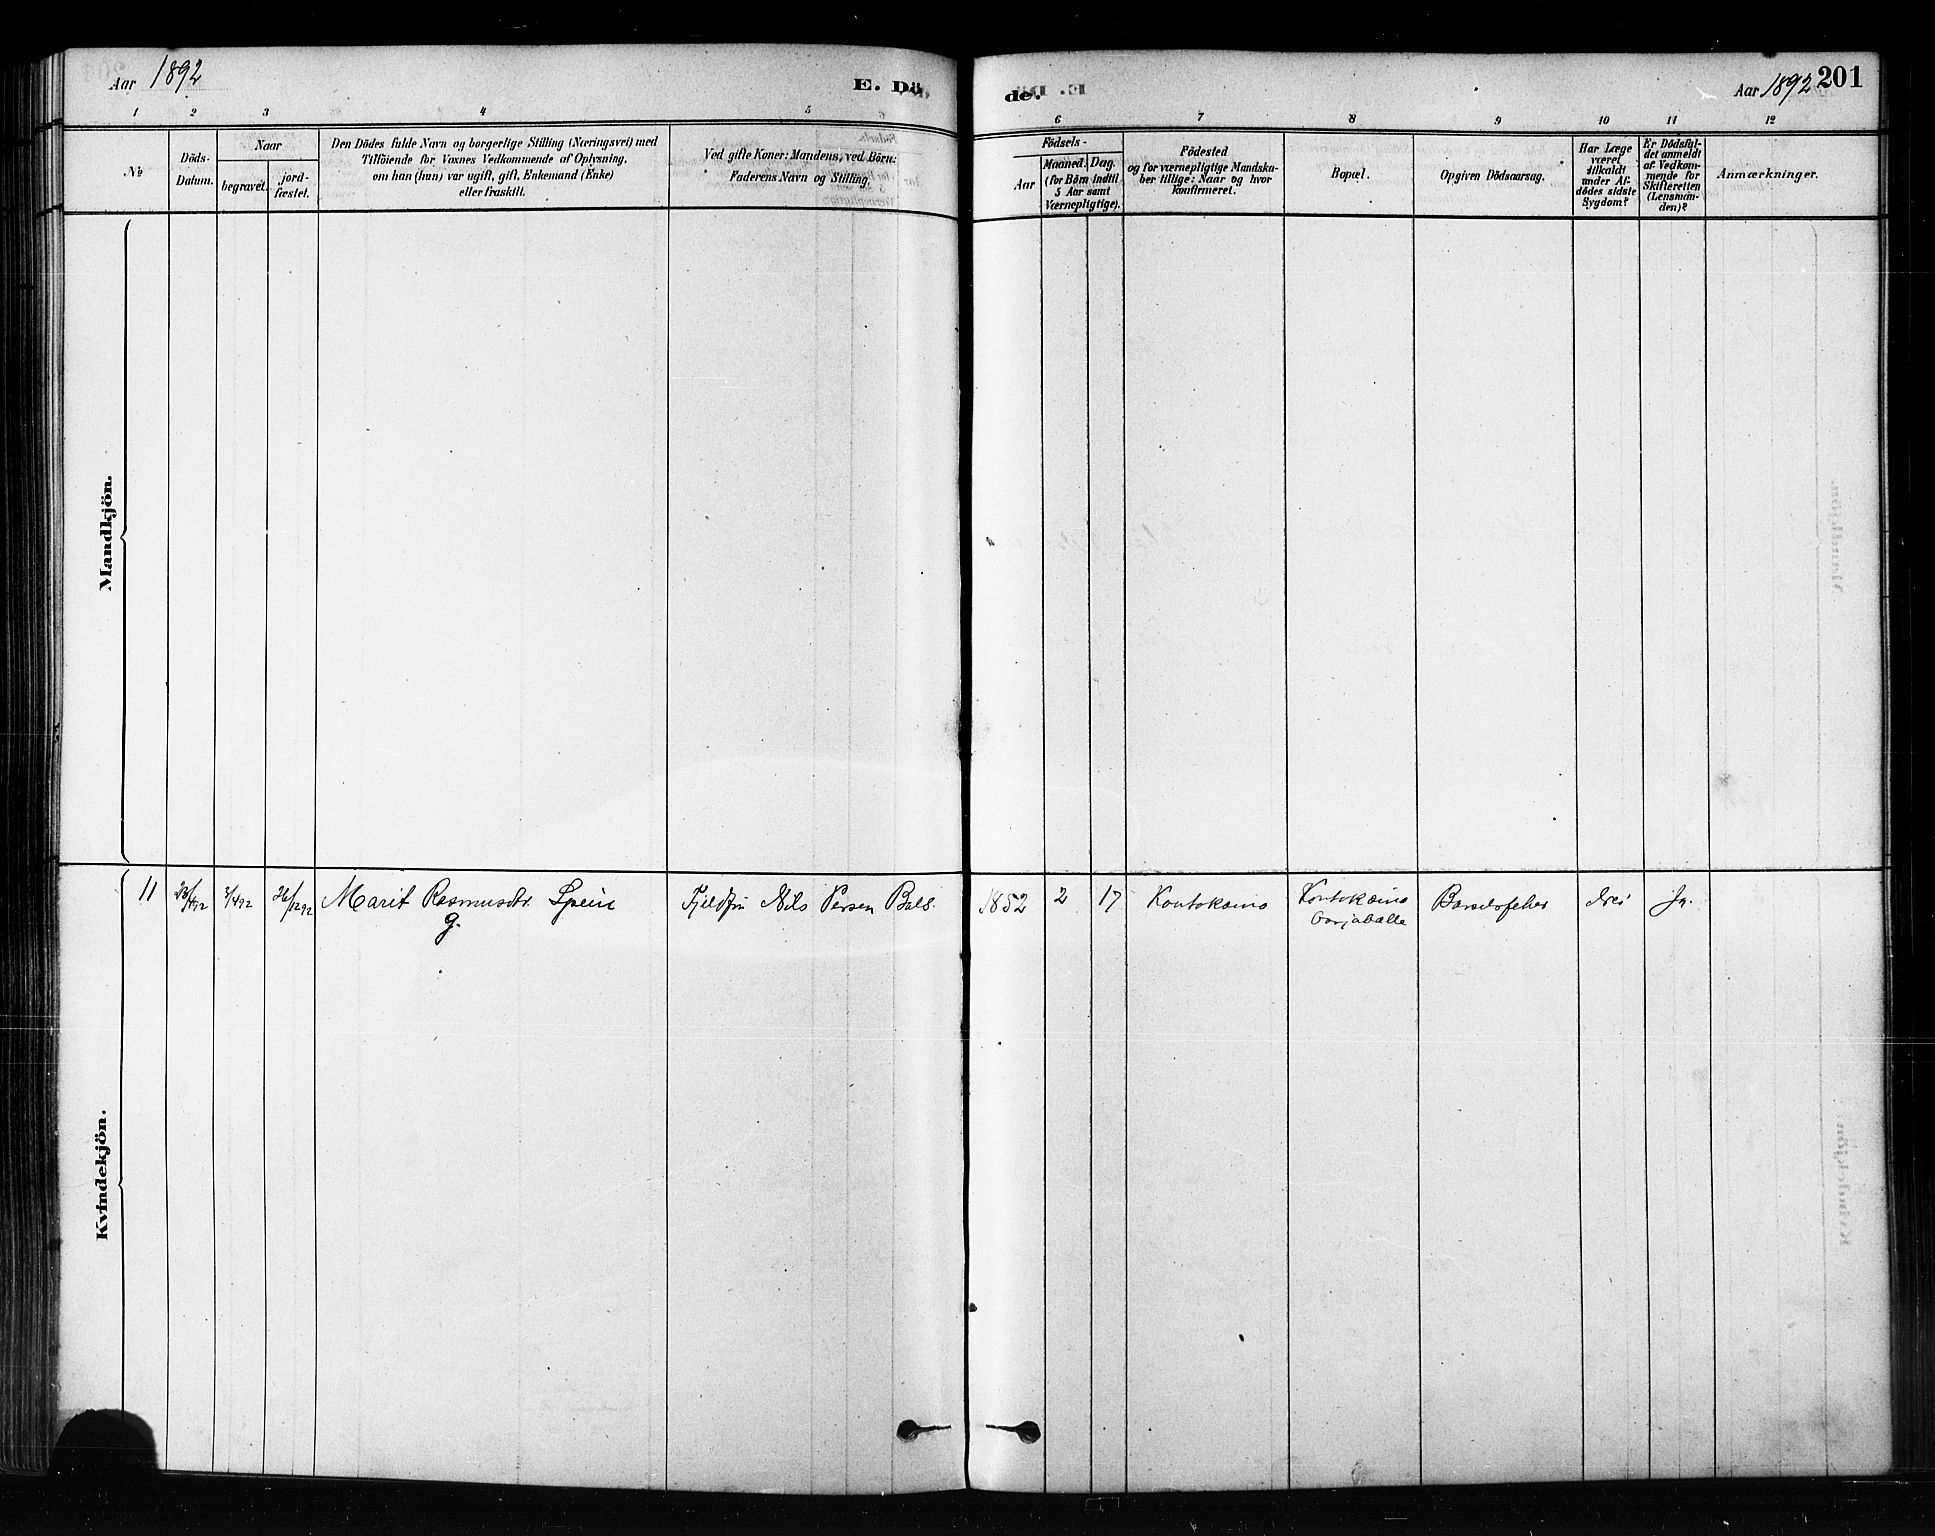 Aar 1892
E. Dö
de.
Aar 1892 201
1 2 3 4 5
6 7 8 9 10 11 12
No
Döds-
Datum.
Naar
begravet.
jord-
fæstet.
Den Dödes fulde Navn og borgerlige Stilling (Næringsvei) med
Tilföiende for Voxnes Vedkommende af Oplysning,
om han (hun) var ugift, gift, Enkemand (Enke)
eller fraskilt.
Ved gifte Koner: Mandens, ved Börn:
Faderens Navn og Stilling.
Födsels-
Aar
Maaned. Dag.
(for Börn indtil
5 Aar samt
Værnepligtige).
Födested
og for værnepligtige Mandska-
ber tillige: Naar og hvor
konfirmeret.
Bopæl.
Opgiven Dödsaarsag.
Har Læge
været
tilkaldt
under Af-
dödes sidste
Sygdom?
Er Dödsfal-
det anmeldt
af Vedkom-
mende for
Skifteretten
(Lensman-
den)?
Anmærkninger.
Mandkjön.
Kvindekjön.
11 26/12 92 Marit Rasmusdtr. Spein Fjeldfin Nils Persen Bals. 1852 2 17 Koutokæino Koutokæino Barselsfeber Nei Ja.
g.